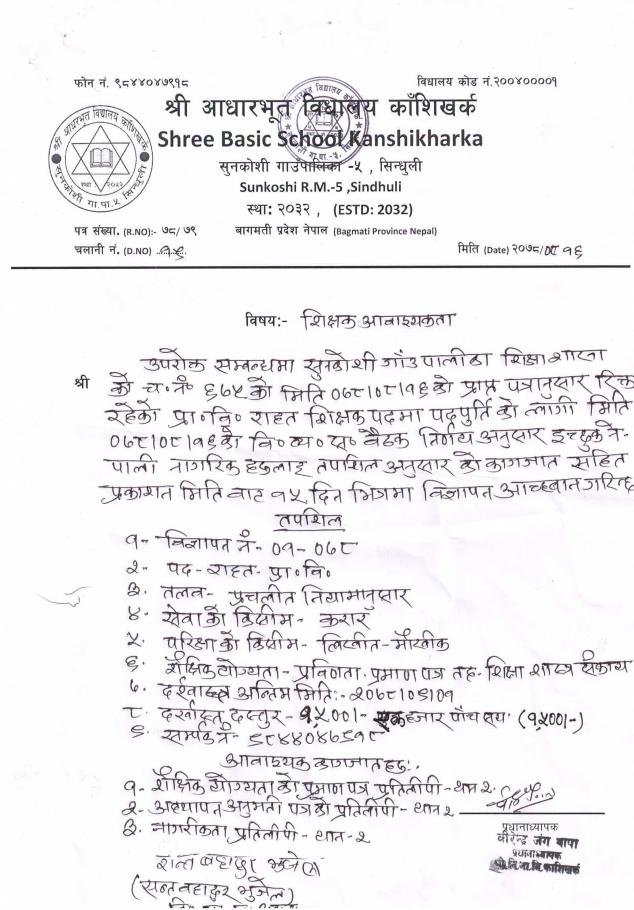 फोन नं. ९८४४०४७९१८
विद्यालय कोड नं.२००४००००१
श्री आधारभूत विद्यालय काँशिखर्क
Shree Basic School Kanshikharka
सुनकोशी गाउपालिका -५ , सिन्धुली
Sunkoshi R.M.-5 ,Sindhuli
स्था: २०३२ , (ESTD: 2032)
पत्र संख्या. (R.NO):- ७८/ ७९
बागमती प्रदेश नेपाल (Bagmati Province Nepal)
चलानी नं. (D.NO)
मिति (Date) २०७८/ ०८ १६
विषय:- शिक्षक आवाश्यकता
उपरोक्त सम्बन्धमा सुनकोशी गाँउ पालीका शिक्षा शाखा
श्री को च.नं० ६७५ को मिति ०७८।०८।१६ को प्राप्त पत्रानुसार रिक्त
रहेको प्रा०वि० राहत शिक्षक पदमा पदपुर्ति को लागी मिति
०७८।०८।१६ को वि०व्य०स० बैठक निर्णय अनुसार इच्छुक ने-
पाली नागरिक हरुलाइ तपशिल अनुसार को कागजात सहित
प्रकाशत मिति बाट १५ दिन भित्रमा विज्ञापन
तपशिल
१- विज्ञापन नं- ०१-०७८
२- पद- राहत- प्रा०वि०
३. तलव- प्रचलीत नियामानुसार
४- सेवा को किसीम- करार
५. परिक्षा को किसीम- लिखीत- मौखीक
६. शैक्षिक योग्यता- प्रविणता प्रमाण पत्र तह- शिक्षा शास्त्र संकाय
७. दर्खास्त अन्तिम मिति:- २०७८।०९।०१
८. दर्खास्त दस्तुर- १,५००।- एक हजार पाँच सय (१,५००।-)
९. सर्म्पक नं- ९८४४०४७९१८
आवाश्यक कागजात हरु:.
१- शैक्षिक योग्यता को प्रमाण पत्र प्रतिलीपी- थान २.
२- अध्यापन अनुमती पत्र को प्रतिलीपी- थान २
३. नागरीकता प्रतिलीपी- थान-२
प्रधानाध्यापक
वीरेन्द्र जंग थापा
प्रधानाध्यापक
(सन्तबहादुर भुजेल)